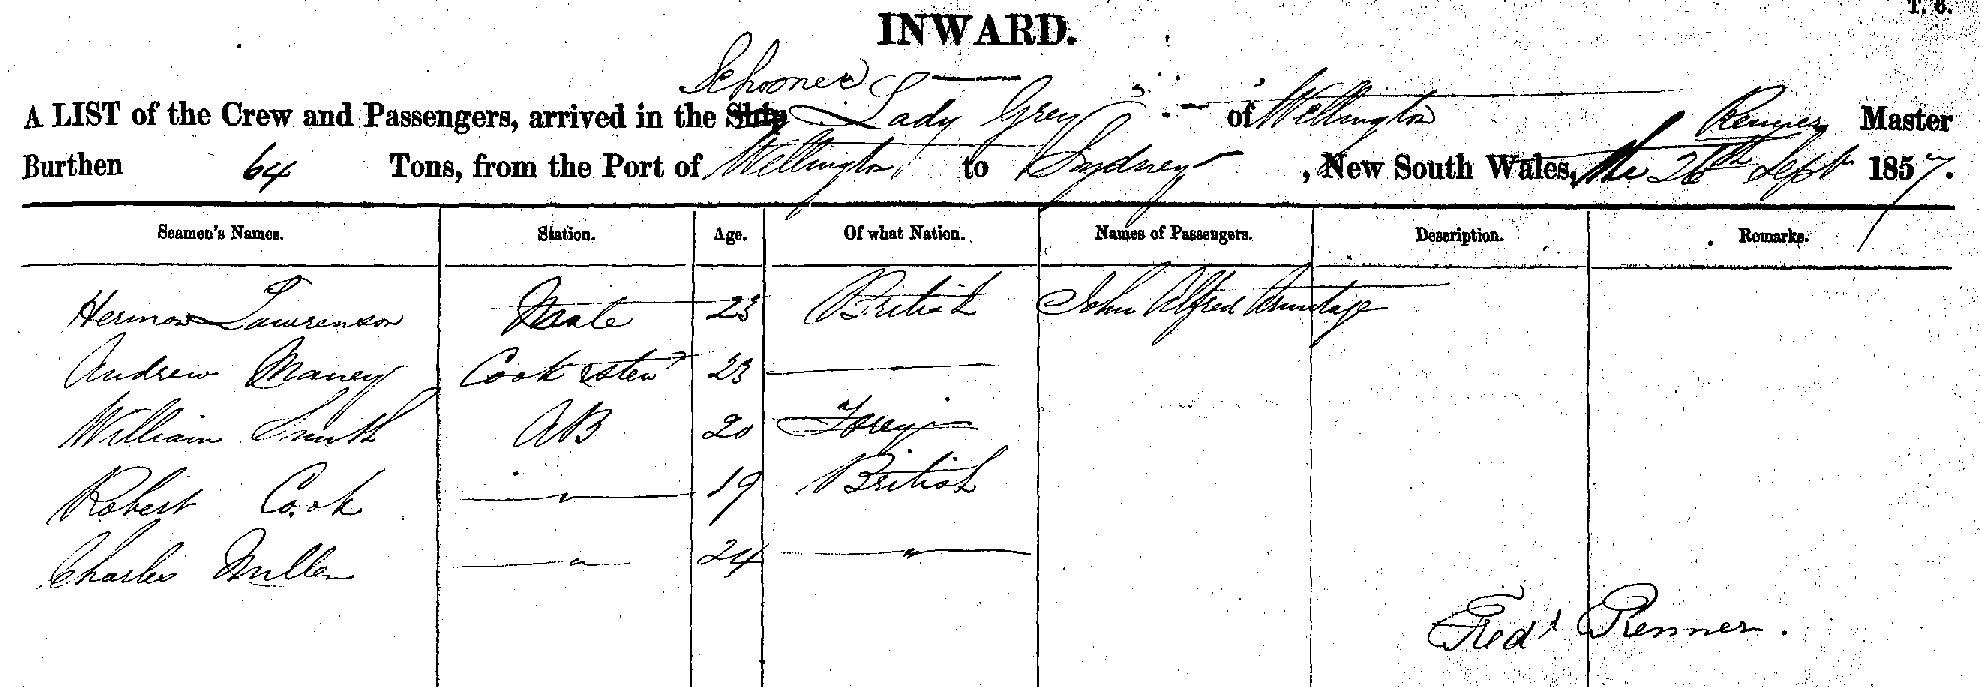 T. 6.
INWARD.
Schooner
A LIST of the Crew and Passengers, arrived in the Ship Lady Grey of Wellington Renner Master
Burthen 64 Tons, from the Port of Wellington to Sydney, New South Wales, the 26th Sept 1857.
Seamen's Names. Station. Age. Of what Nation. Names of Passengers. Description. Remarks.
Hermon Lawrenson Mate 23 British John Alfred Armitage
Andrew Maney Cook & Stew 23
William Smith AB 20 Foreign
Robert Cook " 19 British
Charles " 24 "
Fredk Renner.